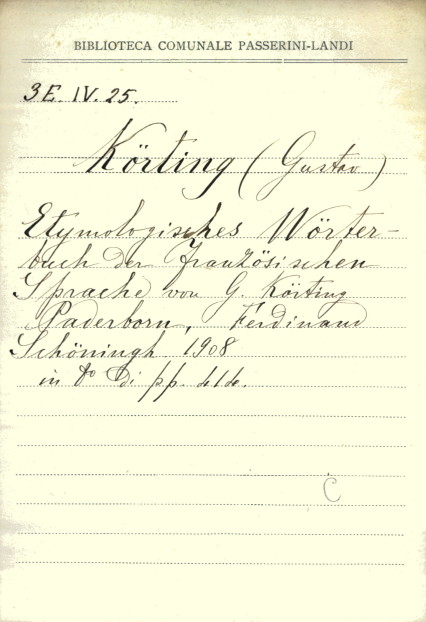 BIBLIOTECA COMUNALE PASSERINI-LANDI
3E. IV. 25.
Körting (Gustav)
Etymologisches Wörter-
buch der französischen
Sprache von G. Körting
Paderborn, Ferdinand
Schöningh 1908
in 8º di pp. 414.
C